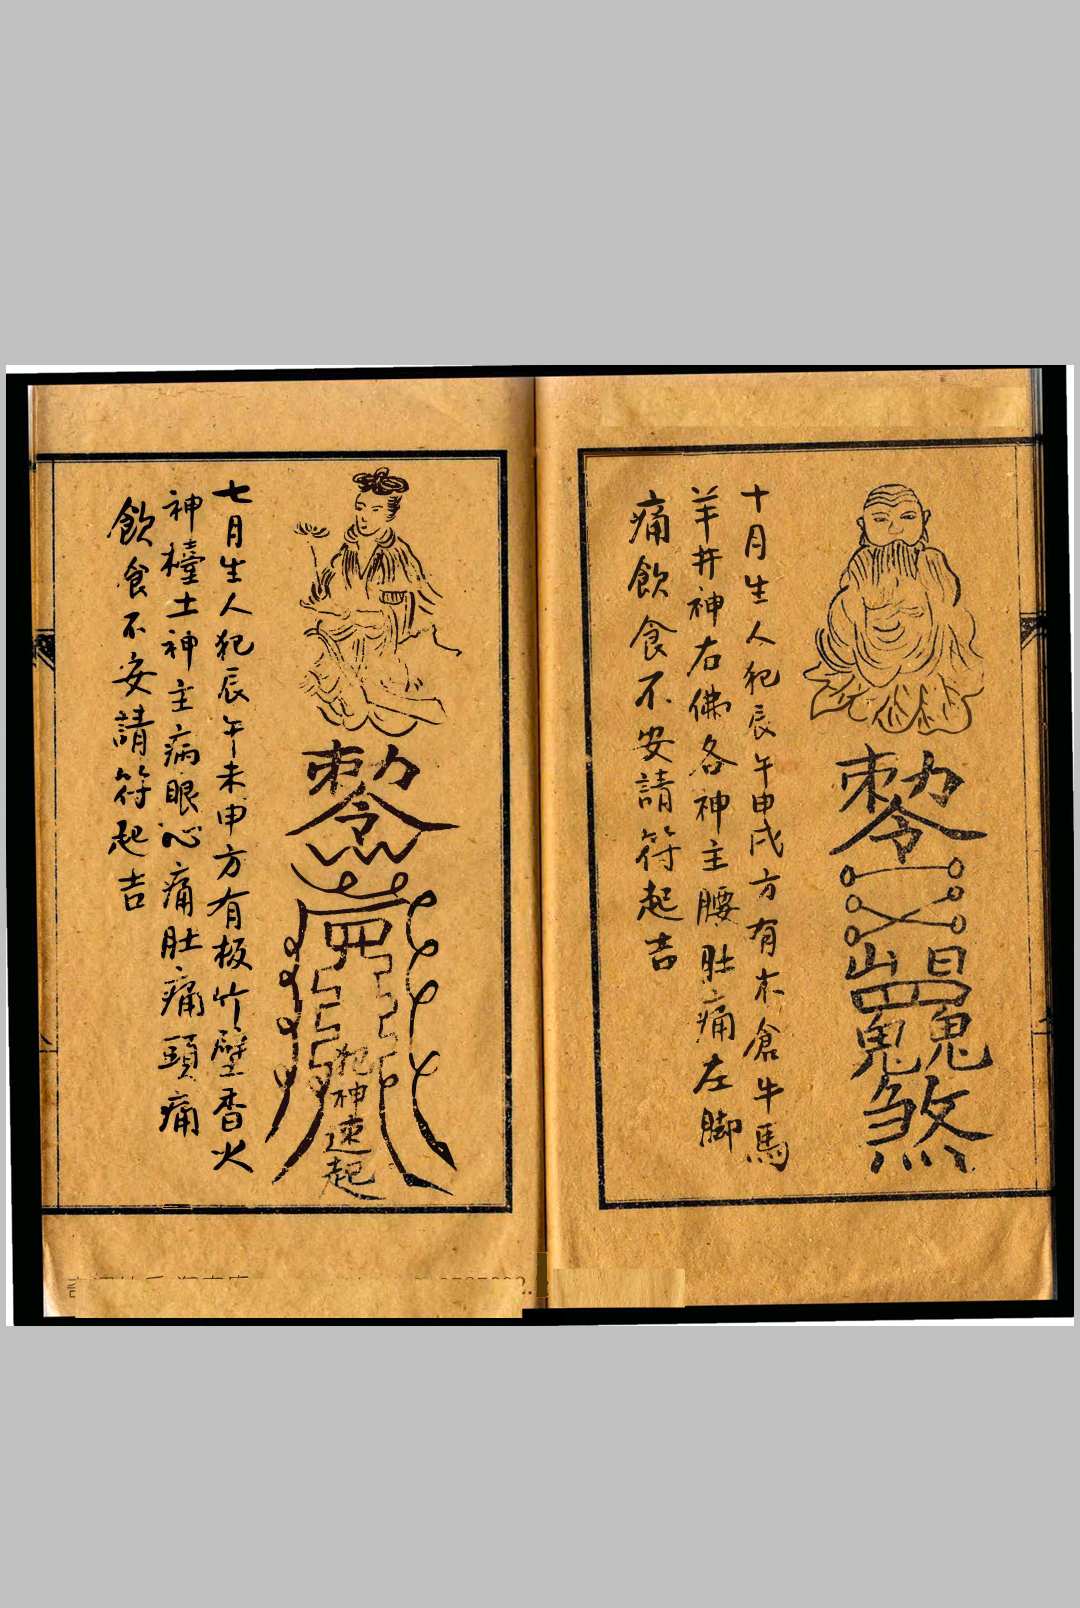 敕令
煞
十月生人犯辰午申戌方有木倉牛馬
羊井神右佛各神主腰肚痛左脚
痛飲食不安請符起吉
敕令
犯神速起
七月生人犯辰午未申方有板竹壁香火
神檯土神主病眼心痛肚痛頭痛
飲食不安請符起吉